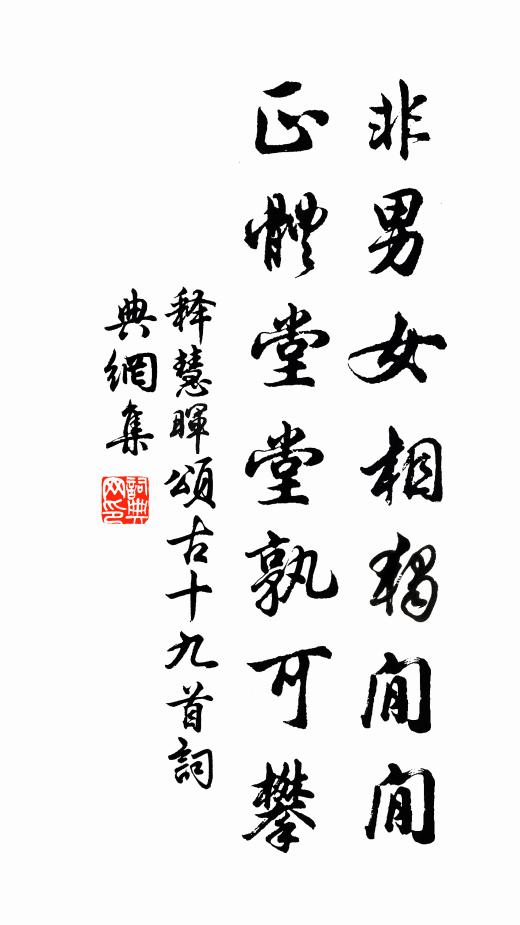 非男女相獨閒閒
正體堂堂孰可攀
释慧暉頌古十九首詞
典網集
詞典
网印